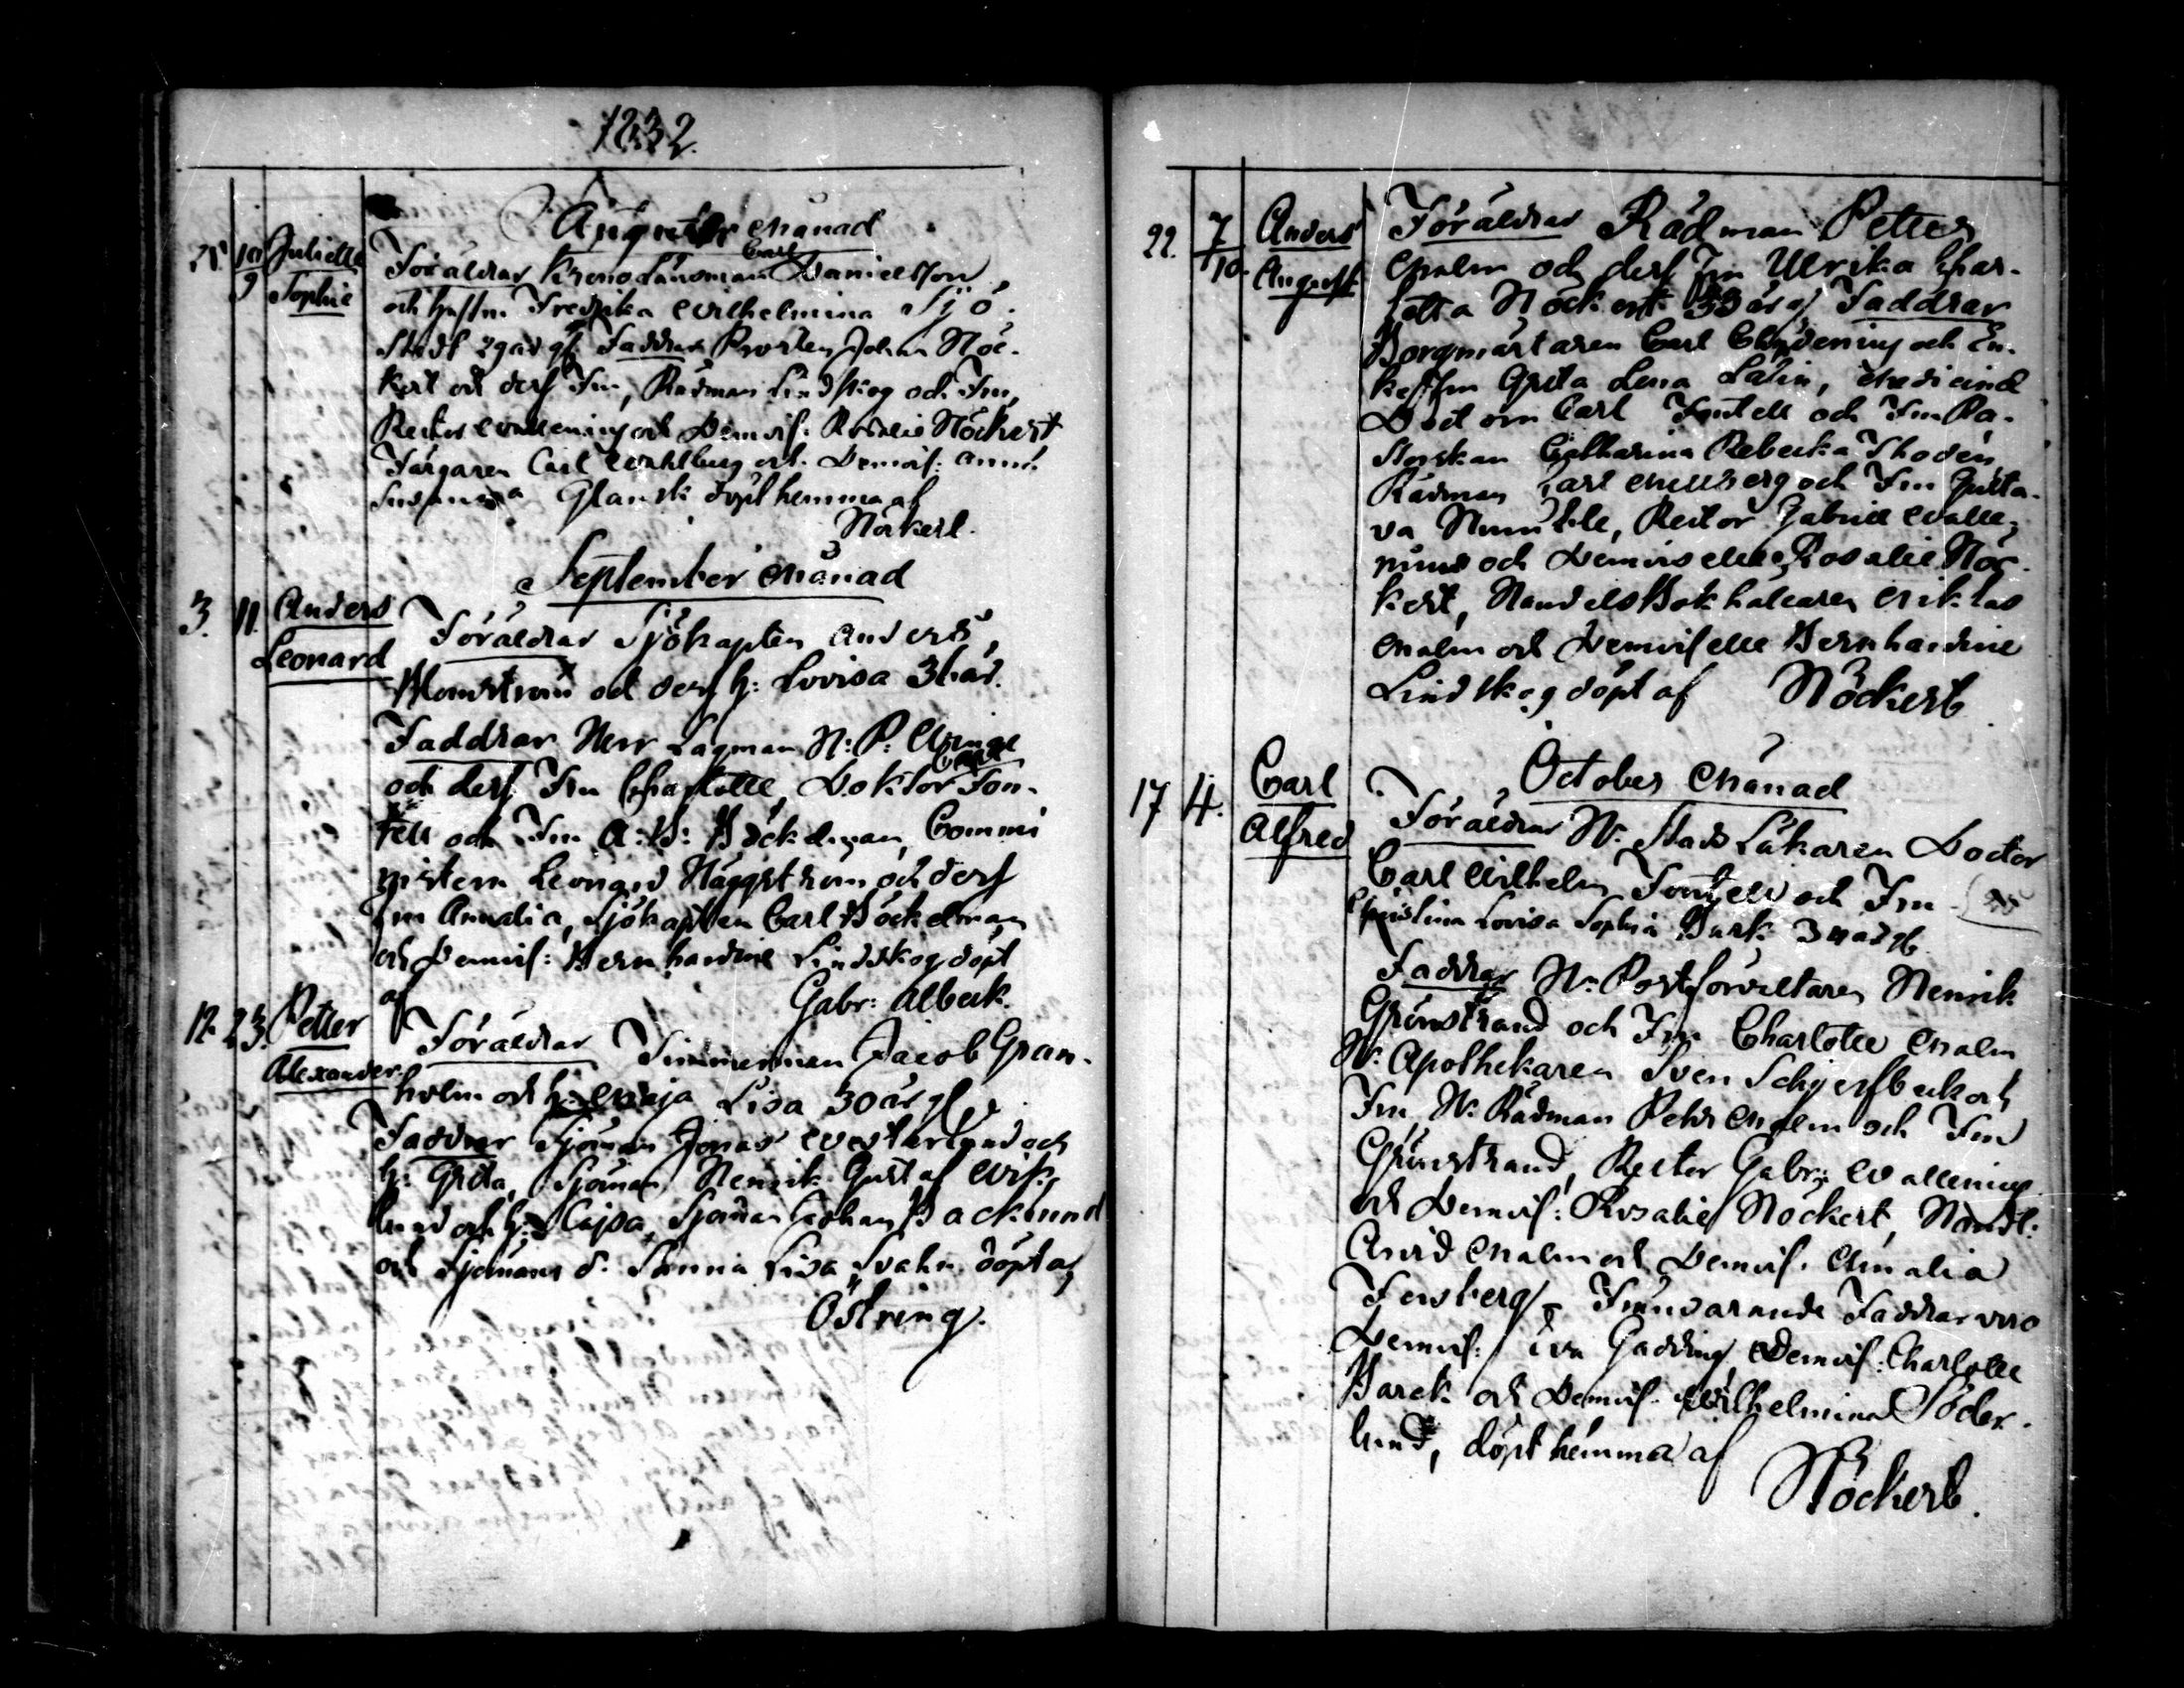 1832.
Augusti Månad
28. 10/9 Juliette Sophie
Föräldrar Krono Länsman Carl Danielsson
och hustru Fredrika Wilhelmina Sjö-
stedt 29 år gl Faddrar Prosten Johan Nöc-
kert och ders Fru, Rådman Lindskog och Fru,
Rector Wallenius och Demois: Rosalie Nöckert
Färgaren Carl Wahlberg och Demois: Anna
Susanna Glansk döpt hemma af
Nöckert.
September Månad
3. 11. Anders Leonard
Föräldrar Sjökapten Anders
Blomström och ders h: Lovisa 36 år.
Faddrar Herr Lagman N: P:
och ders Fru Charlotte, Doktor Carl Fon-
tell och Fru A: B: Böckelman, Commi
nistern Leonard Häggström och ders
Fru Amalia, Sjökapten Carl Böckelman
och Demois: Bernhardine Lindskog döpt
af Gabr: Albeck.
12. 23. Petter Alexander
Föräldrar Timmerman Jacob Gran-
holm och h: Maja Lisa 30 år gl
Faddrar Sjöman Jonas Westerlund och
h: Greta, Sjöman Henrik Gustaf Wik-
lund och h: Cajsa, Sjöman Johan Backlund
och Sjömans d. Sanna Lisa Svahn döpt af
Östring.
22. 7/10. Anders August
Föräldrar Rådman Petter
Malm och ders Fru Ulrika Char-
lotta Nöckert 33 år gl Faddrar
Borgmästaren Carl Chydenius och En-
kefru Greta Lena Latin, Medicine
Doctorn Carl Fontell och Fru Pa-
storskan Catharina Rebecka Thodén
Rådman Carl Mellberg och Fru Gusta-
va , Rector Gabriel Walle-
nius och Demoiselle Rosalie Nöc-
kert, HandelsBokhållaren Niklas
Malm och Demoiselle Bernhardine
Lindskog döpt af Nöckert
October Månad
17 4. Carl Alfred
Föräldrar H. Stads Läkaren Doctor
Carl Wilhelm Fontell och Fru
Christina Lovisa Sophia Burk 34 år gl.
Faddrar H. Postförvaltaren Henrik
Grönstrand och Fru Charlotte Malm
H. Apothekaren Sven Schjerfbeck och
Fru, H. Rådman Pehr Malm och Fru
Grönstrand, Rector Gabr: Wallenius
och Demois: Rosalie Nöckert, Handl:
Arvid Malm och Demois. Amalia
Forsberg, Frånvarande Faddrar voro
Demois: Eva Gadding, Demois: Charlotte
Barck och Demois. Wilhelmina Söder-
lund, döpt hemma af
Nöckert.